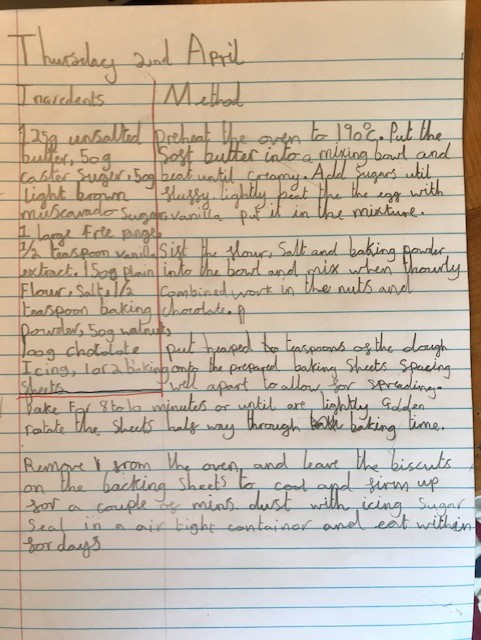 Thursday 2nd April
Inaredents
Method
125g unsalted
butter, 50g
caster Sugar, 50g
light brown
muscavado Sugar,
1 large free range
1/2 teaspoon vanilla
extract. 150g plain
Flour, Salt, 1/2
teaspoon baking
powder, 50g walnuts,
100g chotolate
Icing, 1 or 2 baking
Sheets
preheat the oven to 190°c. Put the
Soft butter into a mixing bowl and
beat until creamy. Add Sugars util
fluffy. lightly beat the the egg with
vanilla put it in the mixture.
Sift the flour, Salt and baking powder
into the bowl and mix when thourly
Combined work in the nuts and
chocolate.
put heaped to teaspoons of the dough
onto the prepared baking Sheets Spacing
well apart to allow for Spreading.
bake for 8 to 10 minutes or until are lightly Golden
rotate the Sheets half way through baking time.
Remove from the oven, and leave the biscuts
on the backing sheets to cool and firm up
for a couple of mins. dust with icing Sugar
Seal in a air tight container and eat within
for days